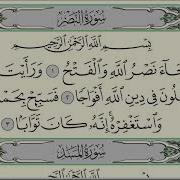 سُورَةُ النَّصْرِ
بِسْمِ اللَّهِ الرَّحْمَٰنِ الرَّحِيمِ
جَآءَ نَصْرُ اللَّهِ وَالْفَتْحُ ١ وَرَأَيْتَ
لُونَ فِى دِينِ اللَّهِ أَفْوَاجًا ٢ فَسَبِّحْ بِحَمْ
وَاسْتَغْفِرْهُ إِنَّهُۥ كَانَ تَوَّابًا ٣
سُورَةُ المَسَدِ
بِسْمِ اللَّهِ الرَّحْمَٰنِ الرَّحِيمِ